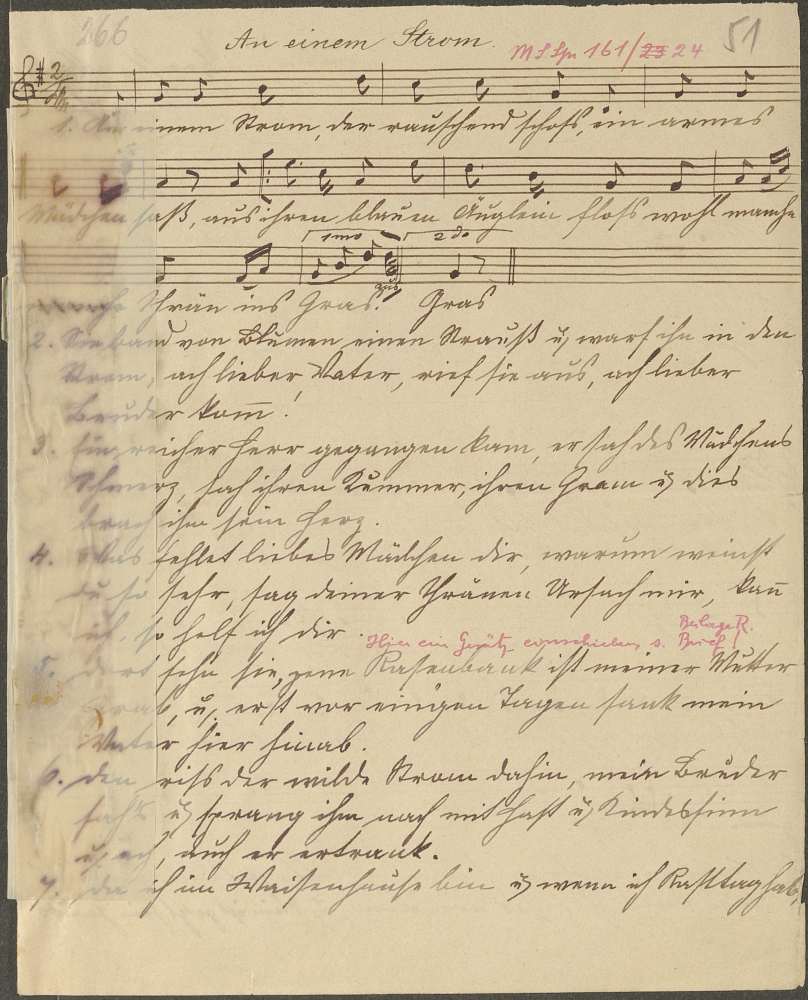 266
An einem Strom.
MS Spr 161/23 24
51
1. An einem Strom, der rauschend schoß, ein armes
Mädchen saß, aus ihren blauen Äuglein floß wohl manche
1mo 2do
Thrän ins Gras. Gras
2. Sie band von Blumen einen Strauß u, warf ihn in den
Strom, ach lieber Vater, rief sie aus, ach lieber
Bruder kom̅!
3. Ein reicher Herr gegangen kam, er sah des Mädchens
Schmerz, sah ihren Kummer, ihren Gram u, dies
brach ihm sein Herz.
4. Was fehlet liebes Mädchen dir, warum weinst
du so sehr, sag deiner Thränen Ursach mir, kan̅
ich, so helf ich dir.
Hier ein einschieben, s. Beilage R.
Brief!
5. dort sehn sie, jene Rasenbank ist meiner Mutter
Grab, u, erst vor einigen Tagen sank mein
Vater hier hinab.
6. den riss der wilde Strom dahin, mein Bruder
sah's u, sprang ihm nach mit Hast u, Kindessinn
u, ach, auch er ertrank.
7. da ich im Waisenhause bin u, wenn ich Rasttag hab,